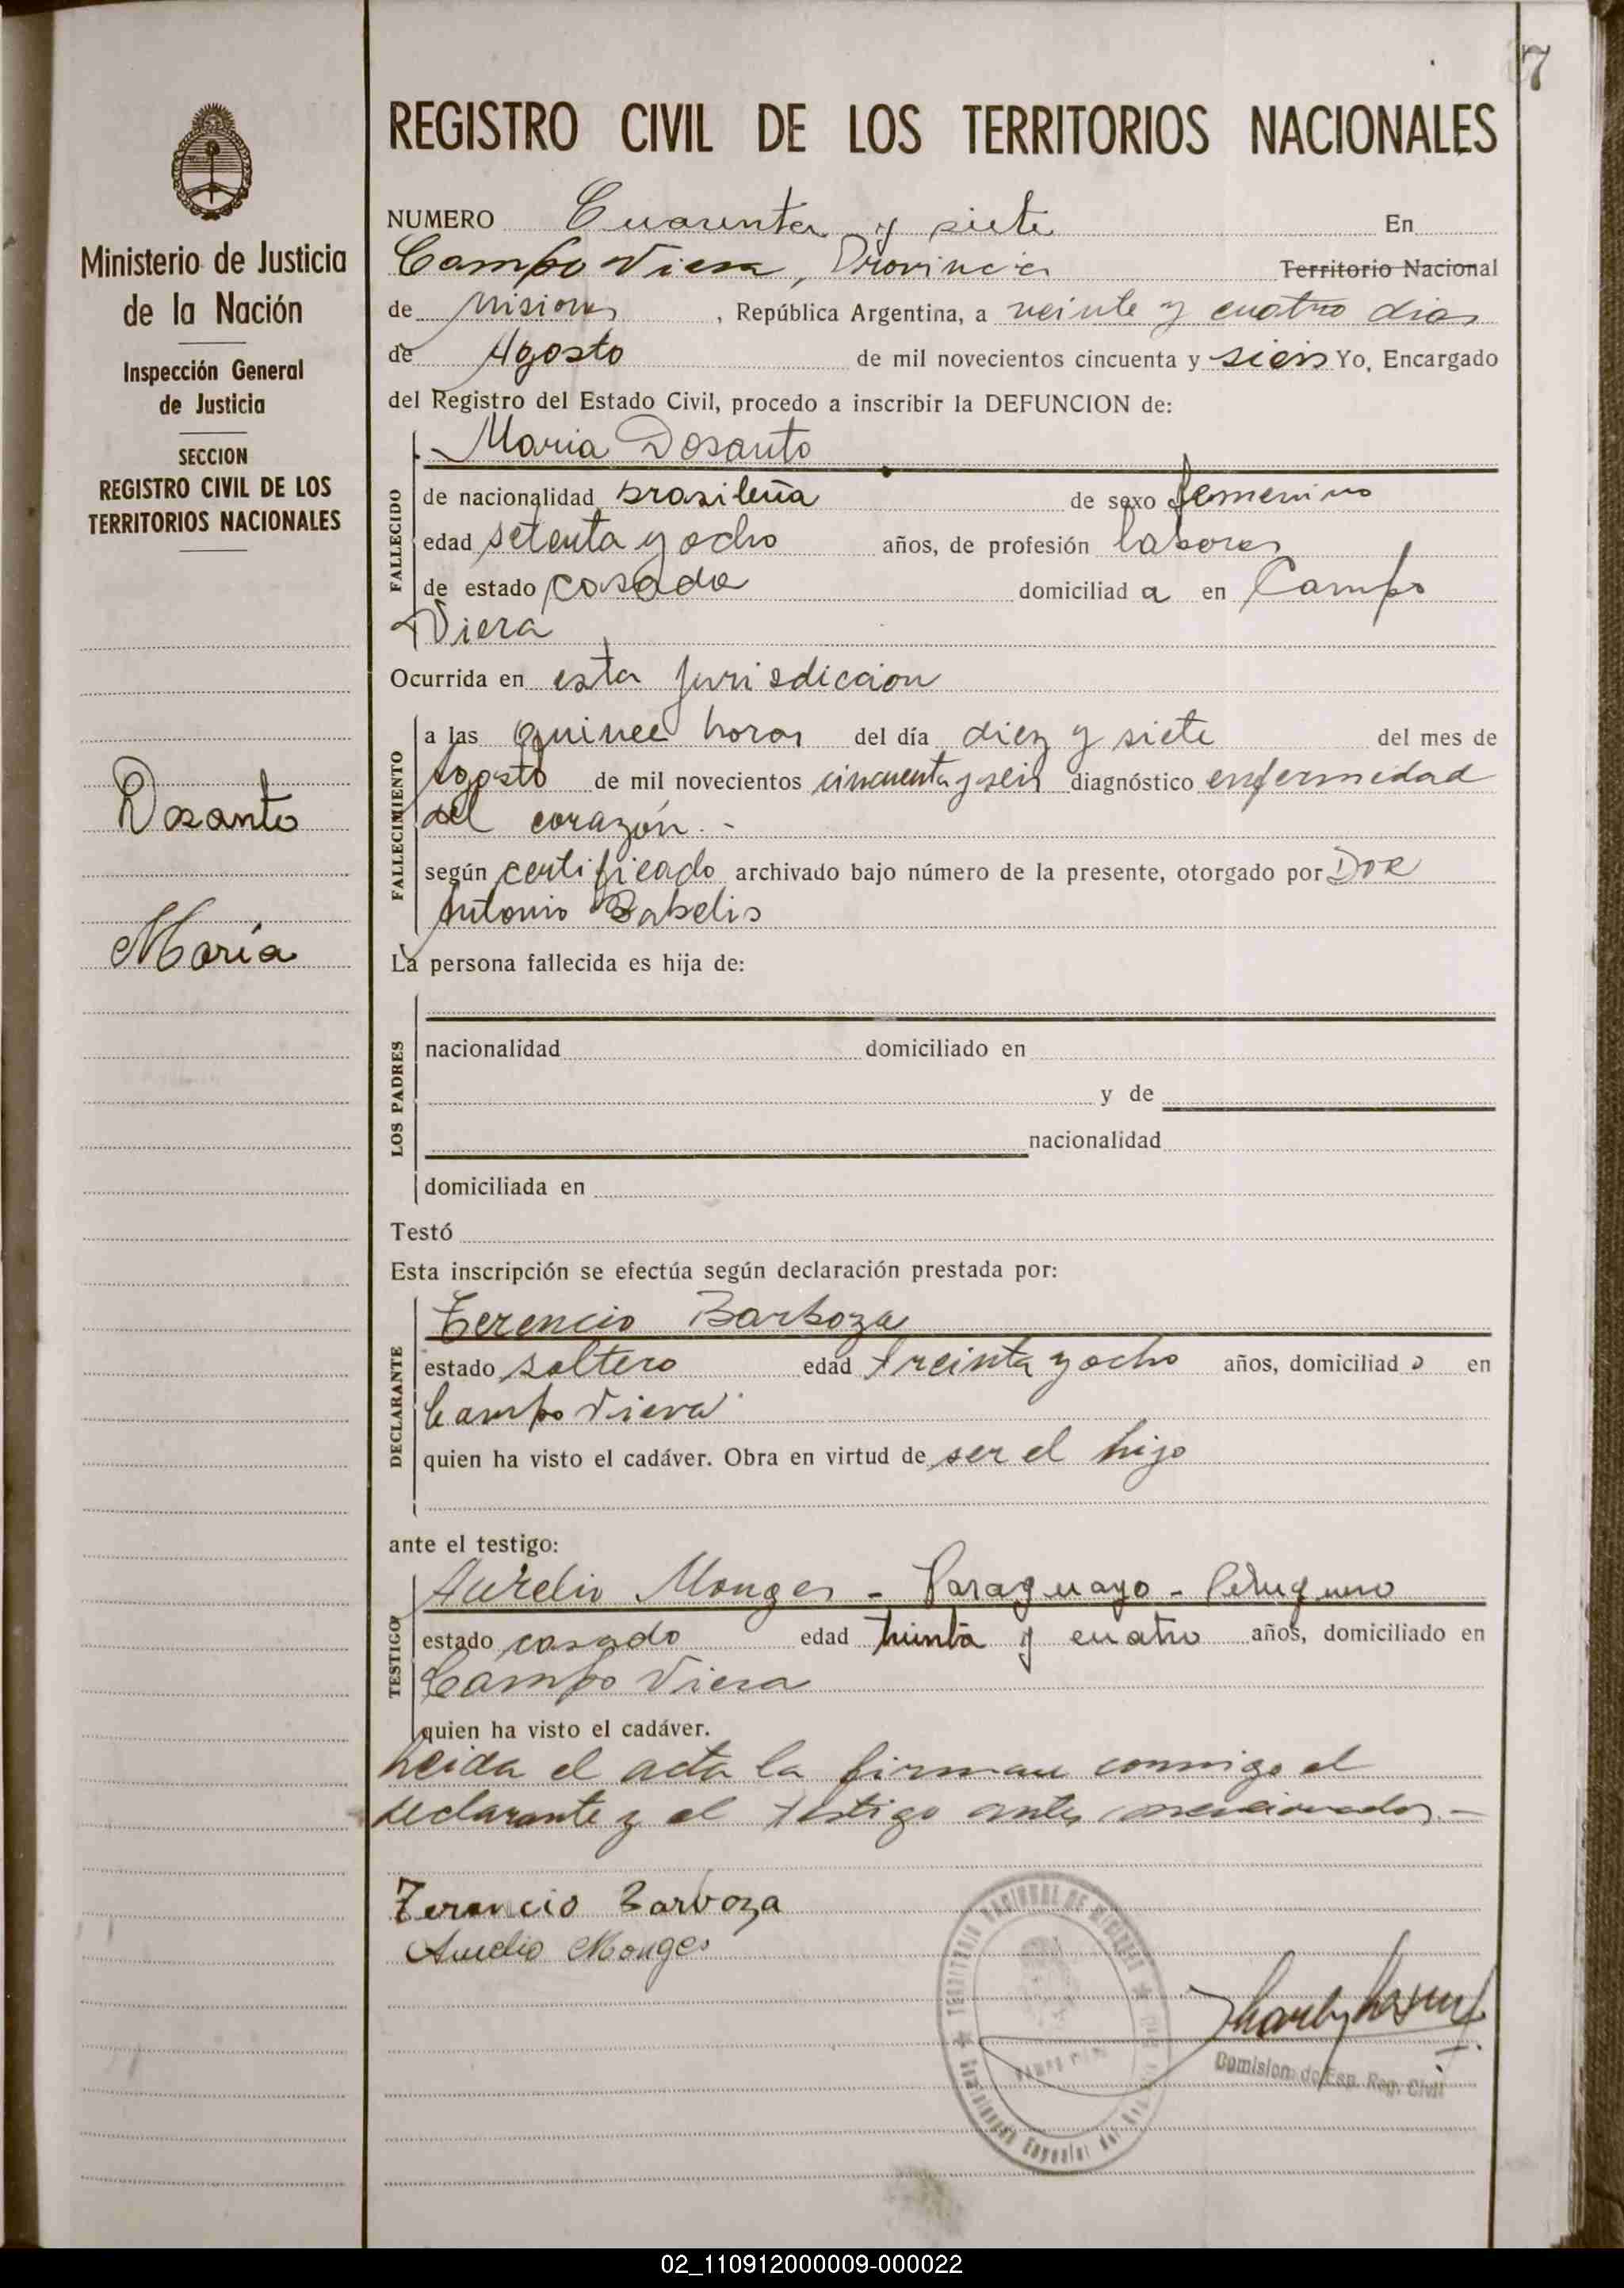 7
REGISTRO CIVIL DE LOS TERRITORIOS NACIONALES
Ministerio de Justicia
de la Nación
Inspección General
de Justicia
SECCION
REGISTRO CIVIL DE LOS
TERRITORIOS NACIONALES
Dosanto
María
NUMERO Cuarenta y siete En
Campo Viera, Provincia Territorio Nacional
de Misiones, República Argentina, a veinte y cuatro dias
de Agosto de mil novecientos cincuenta y sieis Yo, Encargado
del Registro del Estado Civil, procedo a inscribir la DEFUNCION de:
Maria Dosanto
FALLECIDO
de nacionalidad brasileña de sexo femenino
edad setenta y ocho años, de profesión labores
de estado casada domiciliad a en Campo
Viera
Ocurrida en esta jurisdiccion
FALLECIMIENTO
a las quince horas del día diez y siete del mes de
Agosto de mil novecientos cincuenta y seis diagnóstico enfermedad
del corazón.-
según certificado archivado bajo número de la presente, otorgado por Dor
Antonio Babelis
La persona fallecida es hija de:
LOS PADRES
nacionalidad domiciliado en
y de
nacionalidad
domiciliada en
Testó
Esta inscripción se efectúa según declaración prestada por:
DECLARANTE
Terencio Barboza
estado soltero edad treinta y ocho años, domiciliad o en
Campo Viera
quien ha visto el cadáver. Obra en virtud de ser el hijo
ante el testigo:
TESTIGO
Aurelio Monges - Paraguayo - Peluquero
estado casado edad treinta y cuatro años, domiciliado en
Campo Viera
quien ha visto el cadáver.
Leida el acta la firman conmigo el
declarante y el testigo antes mencionados.-
Terencio Barboza
Aurelio Monges
TERRITORIO NACIONAL DE MISIONES
Comision do Esp. Reg. Civil
02_110912000009-000022